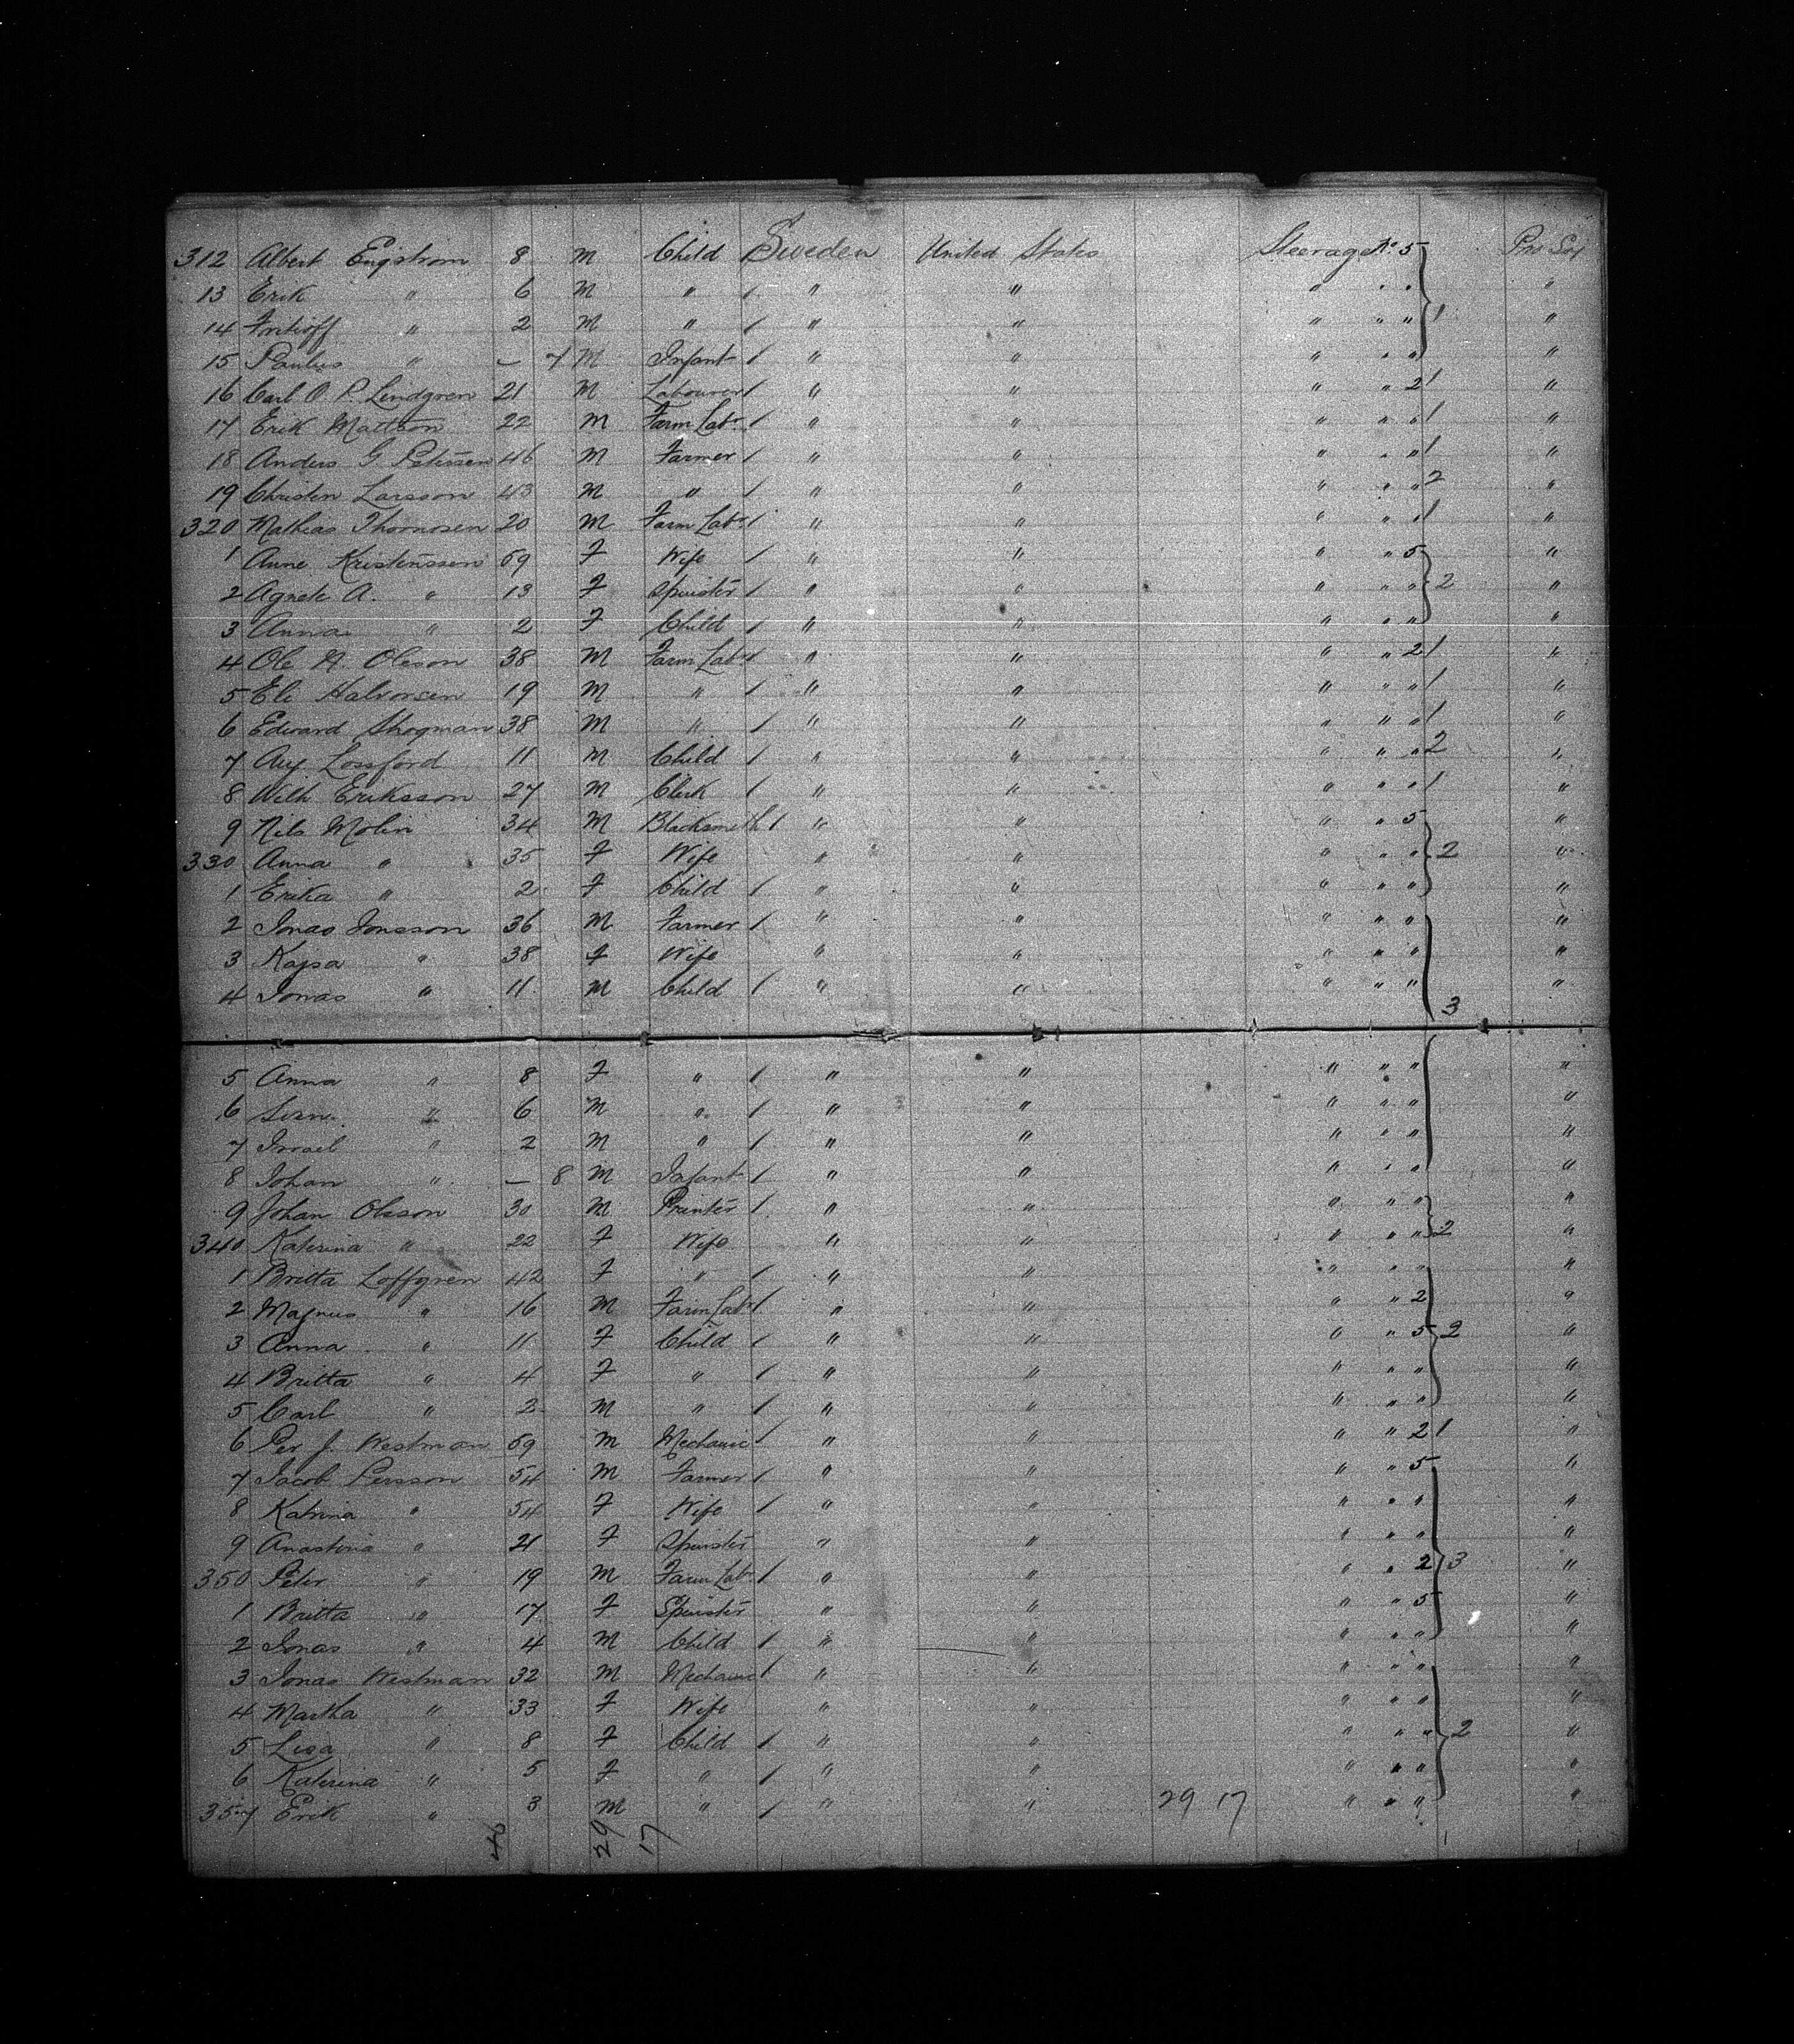 312 Albert Engstrom 8 M Child Sweden United States Steerage No. 5 Pro Sej
13 Erik " 6 M " / " " " " " "
14 Fritioff " 2 M " / " " " " " 1 "
15 Paulus " — 7 M Infant / " " " " " "
16 Carl O. P. Lindgren 21 M Labourer / " " " " 2 1 "
17 Erik Mattson 22 M Farm Labr / " " " " " 1 "
18 Anders G Peterssen 46 M Farmer / " " " " " 1 "
19 Christen Larsson 43 M " / " " " " " 2 "
320 Mathias Thornosen 20 M Farm Labr / " " " " " 1 "
1 Anne Kristenssen 59 F Wife / " " " " 5 "
2 Agnete A. " 13 F Spinster / " " " " " 2 "
3 Anna " 2 F Child / " " " " " "
4 Ole A. Oleson 38 M Farm Labr / " " " " 2 1 "
5 Eli Halvorsen 19 M " / " " " " " 1 "
6 Edward Skogman 38 M " / " " " " " 1 "
7 Aug Lossford 11 M Child / " " " " " 2 "
8 Wilh Eriksson 27 M Clerk / " " " " " 1 "
9 Nils Molin 34 M Blacksmith / " " " " 5 "
330 Anna " 35 F Wife " " " " " 2 "
1 Erika " 2 F Child / " " " " " "
2 Jonas Jonsson 36 M Farmer / " " " " " "
3 Kajsa " 38 F Wife " " " " " "
4 Jonas " 11 M Child / " " " " " "
3
5 Anna " 8 F " / " " " " " "
6 " 6 M " / " " " " " "
7 Israel " 2 M " / " " " " " "
8 Johan " — 8 M Infant / " " " " " "
9 Johan Olsson 30 M Printer / " " " " " "
340 Katerina " 22 F Wife " " " " " 2 "
1 Britta Loffgren 42 F " / " " " " " "
2 Magnus " 16 M Farm Labr / " " " " 2 "
3 Anna " 11 F Child / " " " " 5 2 "
4 Britta " 4 F " / " " " " " "
5 Carl " 2 M " / " " " " " "
6 Per J. Westman 59 M Mechanic / " " " " 2 1 "
7 Jacob Persson 54 M Farmer / " " " " 5 "
8 Katrina " 54 F Wife / " " " " " "
9 Anastina " 21 F Spinster " " " " " "
350 Peter " 19 M Farm Labr / " " " " 2 3 "
1 Britta " 17 F Spinster " " " " 5 "
2 Jonas " 4 M Child / " " " " " "
3 Jonas Westman 32 M Mechanic / " " " " " "
4 Martha " 33 F Wife " " " " " "
5 Lisa " 8 F Child / " " " " " 2 "
6 Katerina " 5 F " / " " " " " "
357 Erik " 3 M " / " " 29 17 " " " "
46 29 17